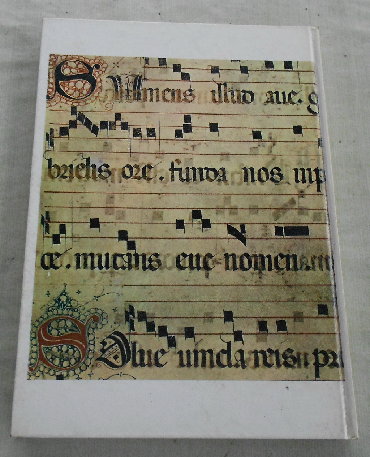 Sumens illud aue. g
brielis ore. funda nos in p
ce. mutans eue nomen.
Solue uincla reis pr